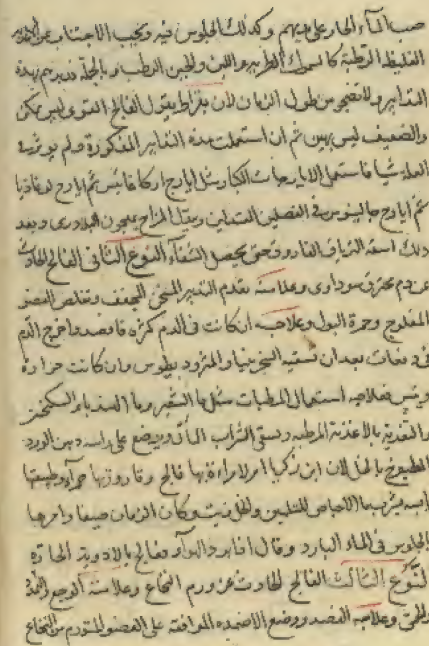 صب الماء الحار عليهم وكذلك الجلوس فيه ويجب الاجتناب عن الاغذية
الغليظة الرطبة كالسمك الطري واللبن والجبن الرطب وبالجملة فدبرهم بهذه
التدابير ولا تضجر من طول الزمان لان بقراط يقول الفالج القوي ليس يمكن
والضعيف ليس يهين ثم ان استعملت هذه التدابير المذكورة ولم يوثر في
العلة شيا فاستعمل الايارجات الكبار مثل ايارج اركاغانيس ثم ايارج لوغاذيا
ثم ايارج جالينوس في الفصلين المعتدلين وبدل المزاج بمعجون البلادري وبعد
ذلك اسقه الترياق الفاروق حتى يحصل الشفآء النوع الثاني الفالج الحادث
عن دم محترق سوداوي وعلامته تقدم التدبير المسخن المجفف وتقلص العضو
المفلوج وحمرة البول وعلاجه ان كانت في الدم كثرة فافصد واخرج الدم
في دفعات بعد ان تسقيه السجزينيا والمثروديطوس وان كانت حرارة
ويبس فعلاجه استعمال المرطبات مثل ماء الشعير وماء الهندباء والسكنجبين
والتغذية بالاغذية المرطبة ويسقى الشراب المائي ويوضع على راسه دهن الورد
المطبوخ بالخل لان ابن زكريا امر لامراة بها فالج وقارورتها حمرآء وطبيعتها
يابسة بشرب ماء الاجاص للتليين والخل زيت وكان الزمان صيفا وامرها
بالجلوس في الماء البارد وقال اذا برد الهوآء فعالج بالادوية الحارة
النوع الثالث الفالج الحادث عن ورم النخاع وعلامته الوجع والتمدد
والحمى وعلاجه الفصد ووضع الاضمدة الموافقة على العضو المتورم من النخاع